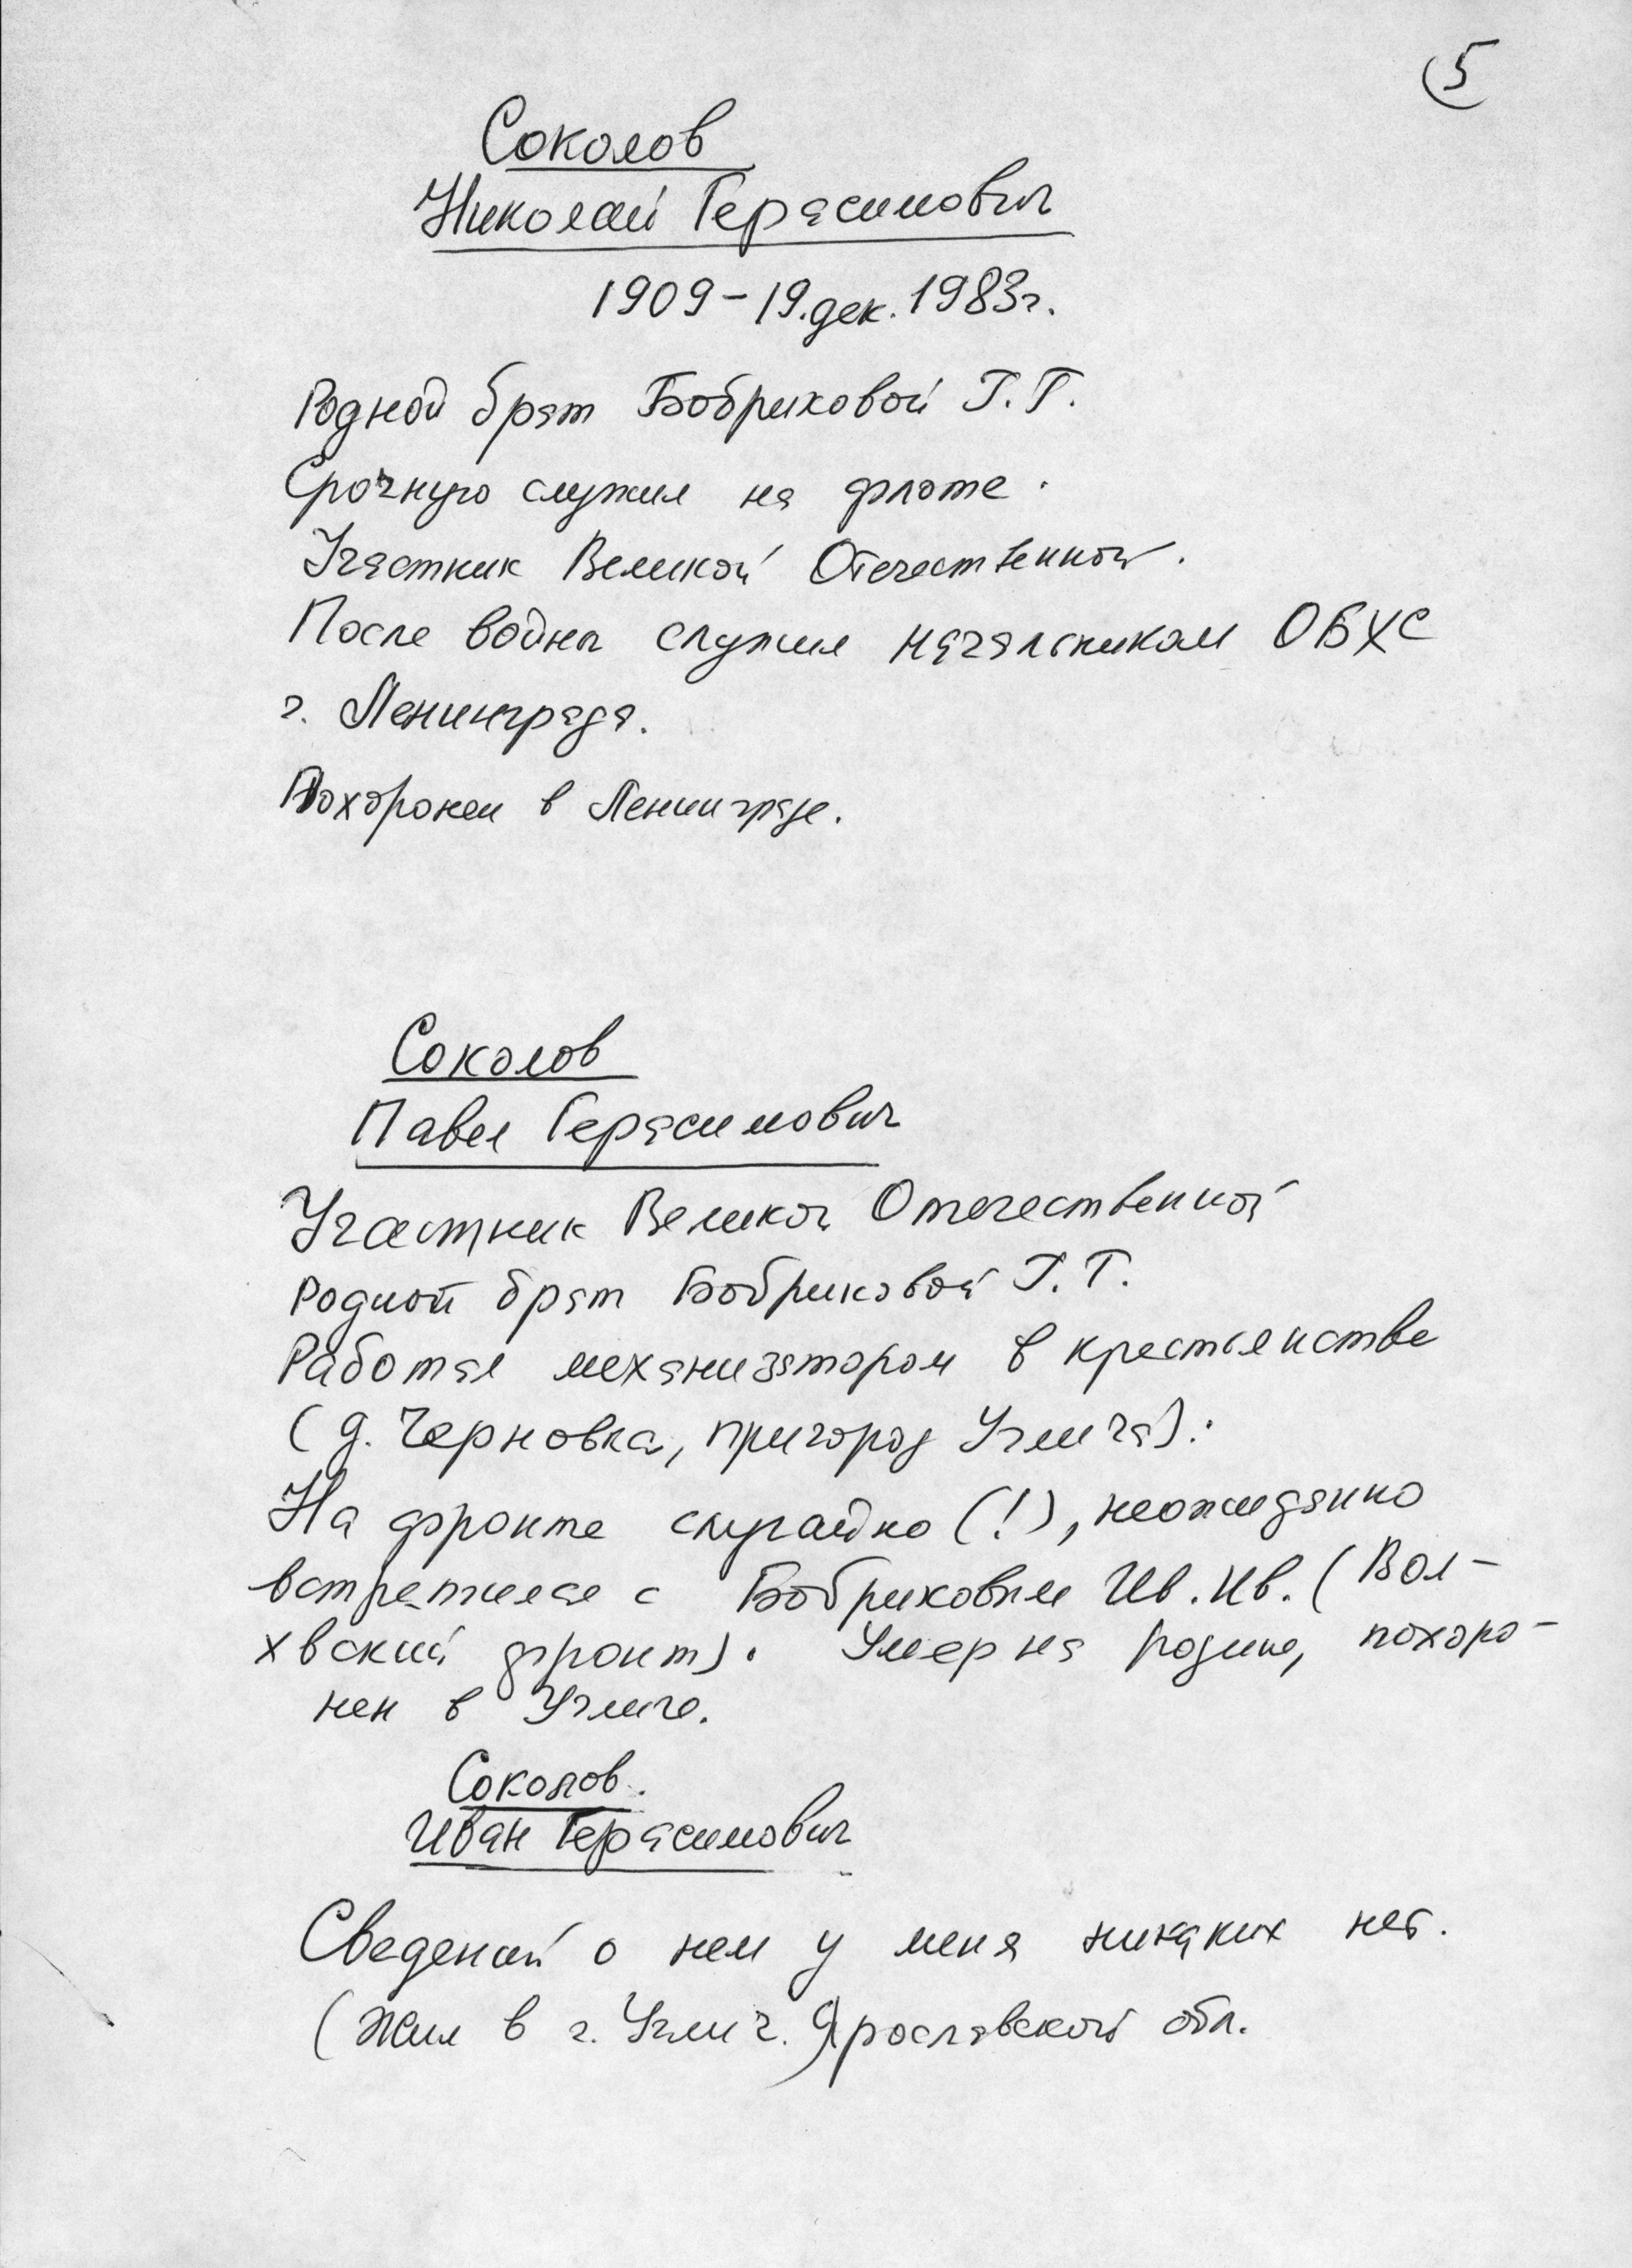 5
Соколов
Николай Герасимович
1909 - 19.дек. 1983г.
Родной брат Бобриковой Т.Г.
Срочную служил на флоте.
Участник Великой Отечественной.
После войны служил начальником ОБХС
г. Ленинграда.
Похоронен в Ленинграде.
Соколов
Павел Герасимович
Участник Великой Отечественной
Родной брат Бобриковой Т.Г.
Работал механизатором в крестьянстве
(д. Черновка, пригород Углича).
На фронте случайно (!), неожиданно
встретился с Бобриковым Ив. Ив. (Вол-
хвский фронт). Умер на родине, похоро-
нен в Угличе.
Соколов.
Иван Герасимович
Сведений о нем у меня никаких нет.
(Жил в г. Углич.) Ярославской обл.